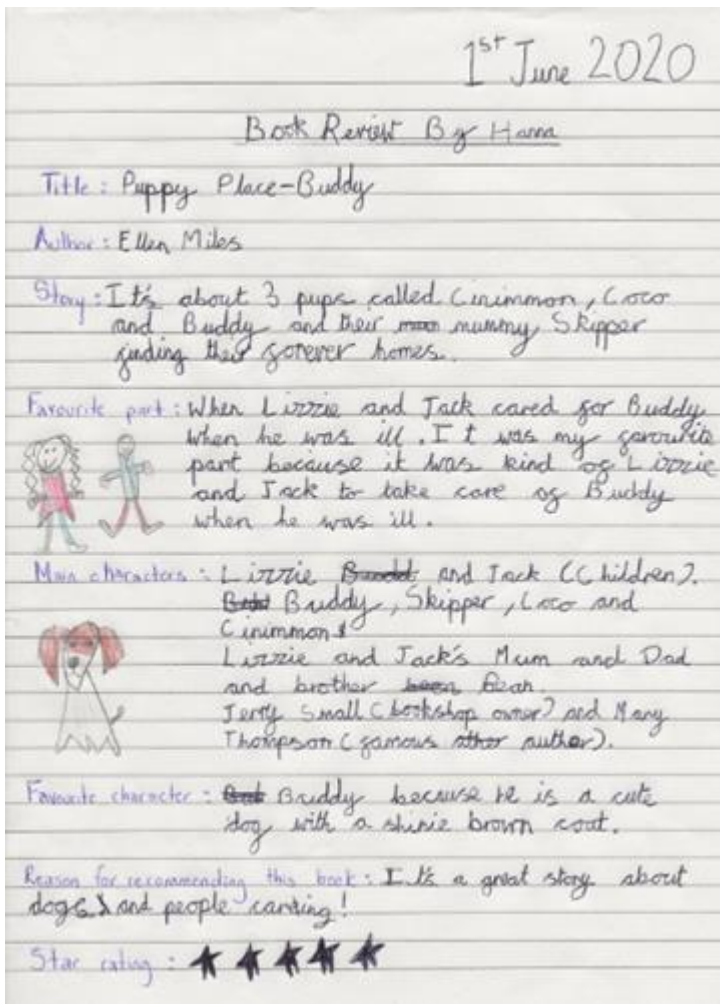 1st June 2020
Book Review By Hanna
Title : Puppy Place-Buddy
Author : Ellen Miles
Story : It's about 3 pups called Cinimmon, Coco
and Buddy and their mummy Skipper
finding their forever homes.
Favourite part : When Lizzie and Jack cared for Buddy
when he was ill. It was my favourite
part because it was kind of Lizzie
and Jack to take care of Buddy
when he was ill.
Main characters : Lizzie and Jack (Children).
Buddy, Skipper, Coco and
Cinimmon
Lizzie and Jack's Mum and Dad
and brother Bean.
Jerry Small (bookshop owner) and Mary
Thompson (famous author).
Favourite character : Buddy because he is a cute
dog with a shinie brown coat.
Reason for recommending this book : It's a great story about
dogs and people carring!
Star rating : ★ ★ ★ ★ ★